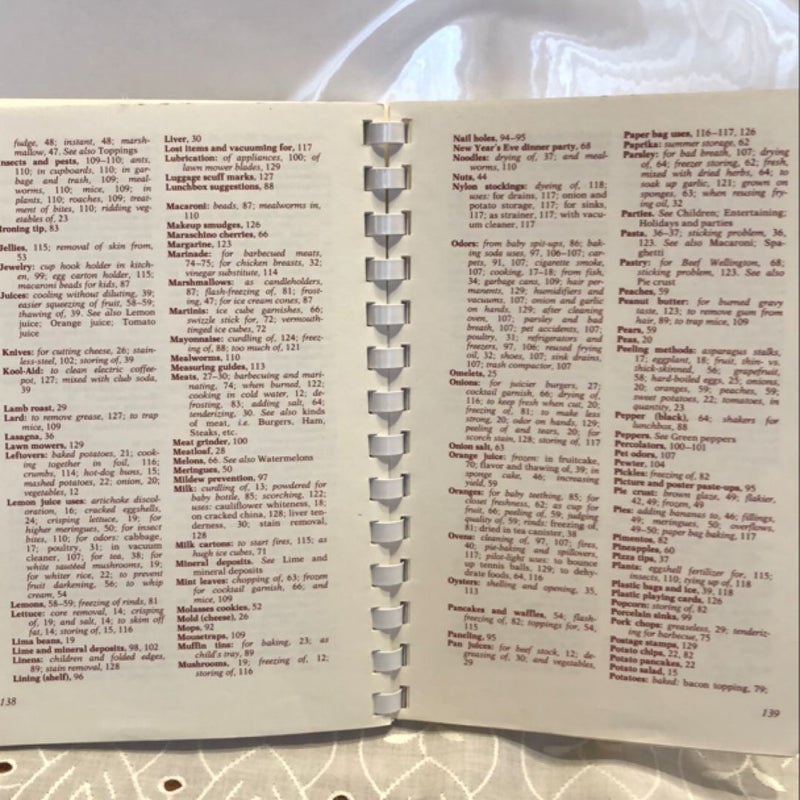 fudge, 48; instant, 48; marsh-
mallow, 47. See also Toppings
nsects and pests, 109–110; ants,
110; in cupboards, 110; in gar-
bage and trash, 109; meal-
worms, 110; mice, 109; in
plants, 110; roaches, 109; treat-
ment of bites, 110; ridding veg-
etables of, 23
Ironing tip, 83
Jellies, 115; removal of skin from,
53
Jewelry: cup hook holder in kitch-
en, 99; egg carton holder, 115;
macaroni beads for kids, 87
Juices: cooling without diluting, 39;
easier squeezing of fruit, 58–59;
thawing of, 39. See also Lemon
juice; Orange juice; Tomato
juice
Knives: for cutting cheese, 26; stain-
less-steel, 102; storing of, 39
Kool-Aid: to clean electric coffee-
pot, 127; mixed with club soda,
39
Lamb roast, 29
Lard: to remove grease, 127; to trap
mice, 109
Lasagna, 36
Lawn mowers, 129
Leftovers: baked potatoes, 21; cook-
ing together in foil, 116;
crumbs, 114; hot-dog buns, 15;
mashed potatoes, 22; onion, 20;
vegetables, 12
Lemon juice uses: artichoke discol-
oration, 16; cracked eggshells,
24; crisping lettuce, 19; for
higher meringues, 50; for insect
bites, 110; for odors: cabbage,
17; poultry, 31; in vacuum
cleaner, 107; for tea, 38; for
white sautéed mushrooms, 19;
for whiter rice, 22; to prevent
fruit darkening, 56; to whip
cream, 54
Lemons, 58–59; freezing of rinds, 81
Lettuce: core removal, 14; crisping
of, 19; and salt, 14; to skim off
fat, 14; storing of, 15, 116
Lima beans, 19
Lime and mineral deposits, 98, 102
Linens: children and folded edges,
89; stain removal, 128
Lining (shelf), 96
138
Liver, 30
Lost items and vacuuming for, 117
Lubrication: of appliances, 100; of
lawn mower blades, 129
Luggage scuff marks, 127
Lunchbox suggestions, 88
Macaroni: beads, 87; mealworms in,
110
Makeup smudges, 126
Maraschino cherries, 66
Margarine, 123
Marinade: for barbecued meats,
74–75; for chicken breasts, 32;
vinegar substitute, 114
Marshmallows: as candleholders,
87; flash-freezing of, 81; frost-
ing, 47; for ice cream cones, 87
Martinis: ice cube garnishes, 66;
swizzle stick for, 72; vermouth-
tinged ice cubes, 72
Mayonnaise: curdling of, 124; freez-
ing of, 88; too much of, 121
Mealworms, 110
Measuring guides, 113
Meats, 27–30; barbecuing and mari-
nating, 74; when burned, 122;
cooking in cold water, 12; de-
frosting, 83; adding salt, 64;
tenderizing, 30. See also kinds
of meat, i.e. Burgers, Ham,
Steaks, etc.
Meat grinder, 100
Meatloaf, 28
Melons, 66. See also Watermelons
Meringues, 50
Mildew prevention, 97
Milk: curdling of, 13; powdered for
baby bottle, 85; scorching, 122;
uses: cauliflower whiteness, 18;
on cracked china, 128; liver ten-
derness, 30; stain removal,
128
Milk cartons: to start fires, 115; as
hugh ice cubes, 71
Mineral deposits. See Lime and
mineral deposits
Mint leaves: chopping of, 63; frozen
for cocktail garnish, 66; and
mice, 109
Molasses cookies, 52
Mold (cheese), 26
Mops, 92
Mousetraps, 109
Muffin tins: for baking, 23; as
child's tray, 89
Mushrooms, 19; freezing of, 12;
storing of, 116
Nail holes, 94–95
New Year's Eve dinner party, 68
Noodles: drying of, 37; and meal-
worms, 110
Nuts, 44
Nylon stockings: dyeing of, 118;
uses: for drains, 117; onion and
potato storage, 117; for sinks,
117; as strainer, 117; with vacu-
um cleaner, 117
Odors: from baby spit-ups, 86; bak-
ing soda uses, 97, 106–107; car-
pets, 91, 107; cigarette smoke,
107; cooking, 17–18; from fish,
34; garbage cans, 109; hair per-
manents, 129; humidifiers and
vacuums, 107; onion and garlic
on hands, 129; after cleaning
oven, 107; parsley and bad
breath, 107; pet accidents, 107;
poultry, 31; refrigerators and
freezers, 97, 106; reused frying
oil, 32; shoes, 107; sink drains,
107; trash compactor, 107
Omelets, 25
Onions: for juicier burgers, 27;
cocktail garnish, 66; drying of,
116; to keep fresh when cut, 20;
freezing of, 81; to make less
strong, 20; odor on hands, 129;
peeling of and tears, 20; for
scorch stain, 128; storing of, 117
Onion salt, 63
Orange juice: frozen: in fruitcake,
70; flavor and thawing of, 39; in
sponge cake, 46; increasing
yield, 59
Oranges: for baby teething, 85; for
closet freshness, 62; as cup for
fruit, 66; peeling of, 59; judging
quality of, 59; rinds: freezing of,
81; dried in tea canister, 38
Ovens: cleaning of, 97, 107; fires,
40; pie-baking and spillovers,
117; pilot-light uses: to bounce
up tennis balls, 129; to dehy-
drate foods, 64, 116
Oysters: shelling and opening, 35,
113
Pancakes and waffles, 54; flash-
freezing of, 82; toppings for, 54,
115
Paneling, 95
Pan juices: for beef stock, 12; de-
greasing of, 30; and vegetables,
29
Paper bag uses, 116–117, 126
Paprika: summer storage, 62
Parsley: for bad breath, 107; drying
of, 64; freezer storing, 62; fresh,
mixed with dried herbs, 64; to
soak up garlic, 121; grown on
sponges, 63; when reusing fry-
ing oil, 32
Parties. See Children; Entertaining;
Holidays and parties
Pasta, 36–37; sticking problem, 36,
123. See also Macaroni; Spa-
ghetti
Pastry: for Beef Wellington, 68;
sticking problem, 123. See also
Pie crust
Peaches, 59
Peanut butter: for burned gravy
taste, 123; to remove gum from
hair, 89; to trap mice, 109
Pears, 59
Peas, 20
Peeling methods: asparagus stalks,
17; eggplant, 18; fruit, thin- vs.
thick-skinned, 56; grapefruit,
58; hard-boiled eggs, 25; onions,
20; oranges, 59; peaches, 59;
sweet potatoes, 22; tomatoes, in
quantity, 23
Pepper (black), 64; shakers for
lunchbox, 88
Peppers. See Green peppers
Percolators, 100–101
Pet odors, 107
Pewter, 104
Pickles: freezing of, 82
Picture and poster paste-ups, 95
Pie crust: brown glaze, 49; flakier,
42, 49; frozen, 49
Pies: adding bananas to, 46; fillings,
49; meringues, 50; overflows,
49–50; paper bag baking, 117
Pimentos, 82
Pineapples, 60
Pizza tips, 37
Plants: eggshell fertilizer for, 115;
insects, 110; tying up of, 118
Plastic bags and ice, 39, 118
Plastic playing cards, 126
Popcorn: storing of, 82
Porcelain sinks, 99
Pork chops: greaseless, 29; tenderiz-
ing for barbecue, 75
Postage stamps, 129
Potato chips, 22, 82
Potato pancakes, 22
Potato salad, 15
Potatoes: baked: bacon topping, 79;
139